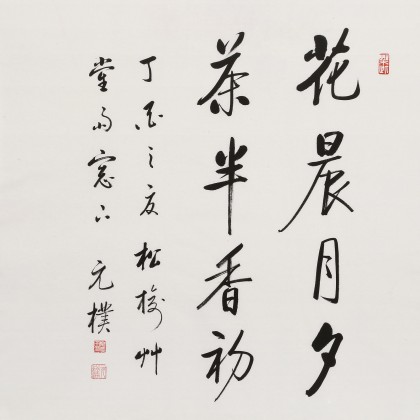 花晨月夕
茶半香初
丁酉之夏松梅艸
堂雨窗下元樸